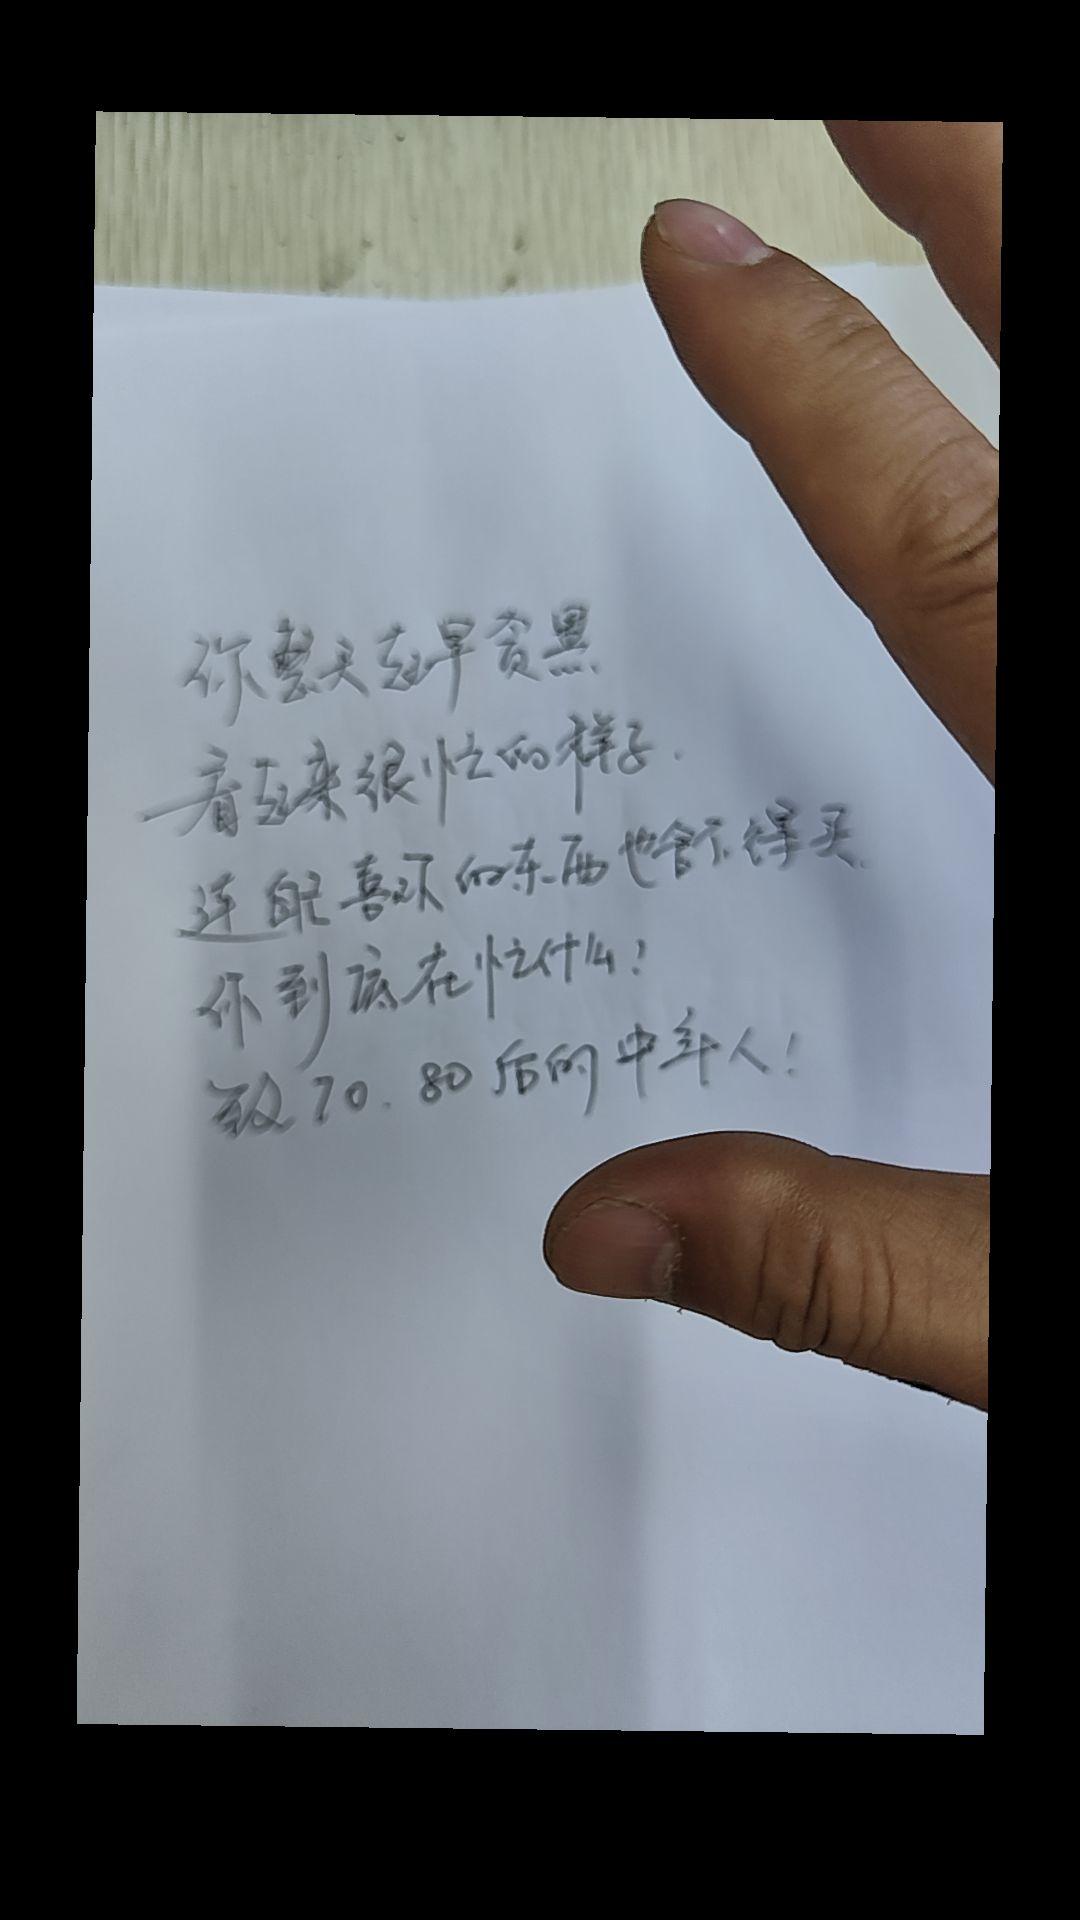 你整天起早贪黑
看起来很忙的样子.
连自己喜欢的东西也舍不得买.
你到底在忙什么!
致70.80后的中年人!